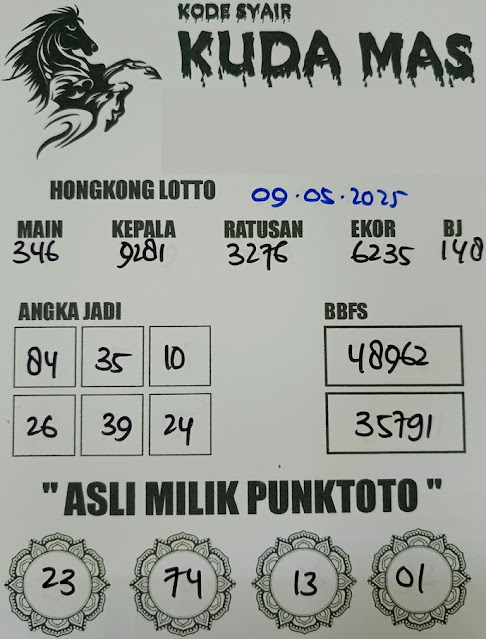 KODE SYAIR
KUDA MAS
HONGKONG LOTTO 09.05.2025
MAIN KEPALA RATUSAN EKOR BJ
346 9281 3276 6235 148
ANGKA JADI BBFS
84 35 10 48962
26 39 24 35791
" ASLI MILIK PUNKTOTO "
23 74 13 01